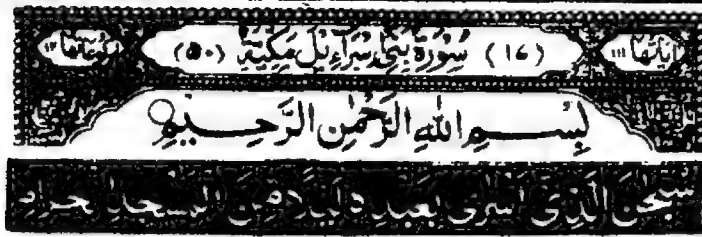 اٰیاتها ۱۱۱ (۱۷) سُوْرَةُ بَنِیْۤ اِسْرَآءِیْلَ مَكِّیَّةٌ (۵۰) رکوعاتها ۱۲
بِسْمِ اللّٰهِ الرَّحْمٰنِ الرَّحِیْمِ
سُبْحٰنَ الَّذِیْۤ اَسْرٰی بِعَبْدِهٖ لَیْلًا مِّنَ الْمَسْجِدِ الْحَرَامِ